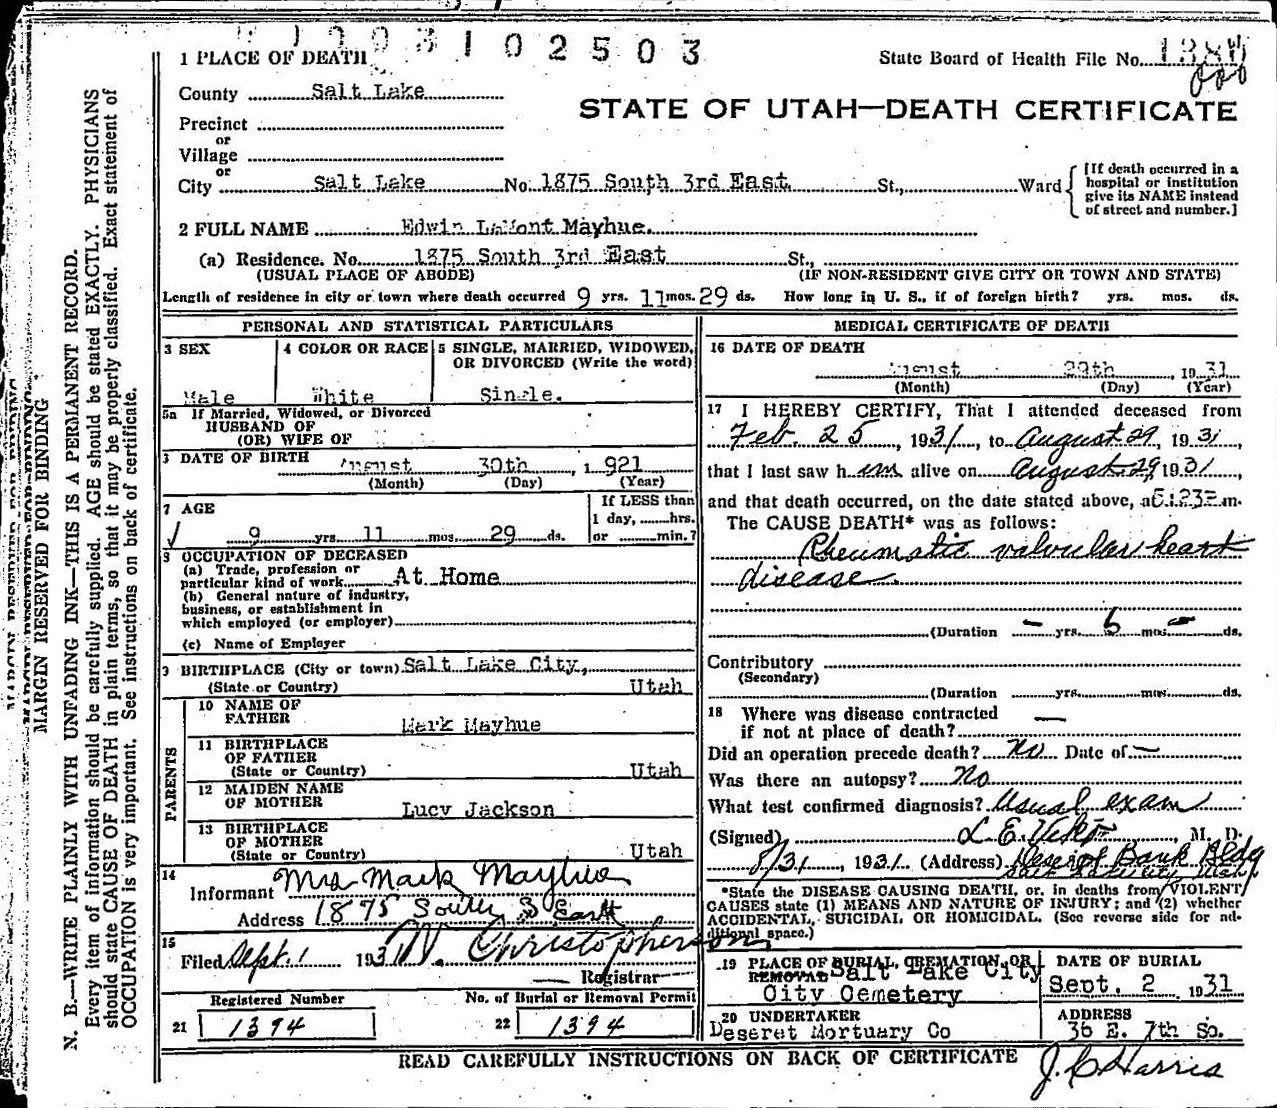 3 1 0 2 5 0 3
1 PLACE OF DEATH
State Board of Health File No.
County Salt Lake
STATE OF UTAH—DEATH CERTIFICATE
Precinct
or
Village
or
City Salt Lake No. 1875 South 3rd East St., Ward
[If death occurred in a hospital or institution give its NAME instead of street and number.]
2 FULL NAME Edwin LaMont Mayhue.
(a) Residence. No. 1875 South 3rd East St.,
(USUAL PLACE OF ABODE) (IF NON-RESIDENT GIVE CITY OR TOWN AND STATE)
Length of residence in city or town where death occurred 9 yrs. 11 mos. 29 ds. How long in U. S., if of foreign birth? yrs. mos. ds.
PERSONAL AND STATISTICAL PARTICULARS
3 SEX
Male
4 COLOR OR RACE
White
5 SINGLE, MARRIED, WIDOWED,
OR DIVORCED (Write the word)
Single.
5a If Married, Widowed, or Divorced
HUSBAND OF
(OR) WIFE OF
DATE OF BIRTH August 30th, 1921
(Month) (Day) (Year)
7 AGE
9 yrs 11 mos. 29 ds.
If LESS than
1 day, hrs.
or min.?
8 OCCUPATION OF DECEASED
(a) Trade, profession or
particular kind of work At Home
(b) General nature of industry,
business, or establishment in
which employed (or employer)
(c) Name of Employer
9 BIRTHPLACE (City or town) Salt Lake City,
(State or Country) Utah
PARENTS
10 NAME OF
FATHER Mark Mayhue
11 BIRTHPLACE
OF FATHER
(State or Country) Utah
12 MAIDEN NAME
OF MOTHER Lucy Jackson
13 BIRTHPLACE
OF MOTHER
(State or Country) Utah
14
Informant Mrs Mark Mayhue
Address 1875 South 3 East
15
Filed Sept. 1 193 Christopherson
Registrar
Registered Number
21 1394
No. of Burial or Removal Permit
22 1394
MEDICAL CERTIFICATE OF DEATH
16 DATE OF DEATH
August 29th, 1931
(Month) (Day) (Year)
17 I HEREBY CERTIFY, That I attended deceased from
Feb. 25, 1931, to August 29, 1931,
that I last saw him alive on August 29, 1931
and that death occurred, on the date stated above, at m.
The CAUSE DEATH* was as follows:
Rheumatic valvular heart
disease
(Duration — yrs. 6 mos — ds.
Contributory
(Secondary)
(Duration yrs. mos. ds.
18 Where was disease contracted
if not at place of death? —
Did an operation precede death? No Date of —
Was there an autopsy? No
What test confirmed diagnosis? Usual exam
(Signed) L. E. Viko, M. D.
8/31, 1931. (Address) Deseret Bank Bldg
Salt Lake City, Utah.
*State the DISEASE CAUSING DEATH, or, in deaths from VIOLENT
CAUSES state (1) MEANS AND NATURE OF INJURY; and (2) whether
ACCIDENTAL, SUICIDAL OR HOMICIDAL. (See reverse side for additional space.)
19 PLACE OF BURIAL, CREMATION, OR
REMOVAL Salt Lake City
City Cemetery
DATE OF BURIAL
Sept. 2 1931
20 UNDERTAKER
Deseret Mortuary Co
ADDRESS
36 E. 7th So.
READ CAREFULLY INSTRUCTIONS ON BACK OF CERTIFICATE
J. C. Harris
MARGIN RESERVED FOR BINDING
N. B.—WRITE PLAINLY WITH UNFADING INK—THIS IS A PERMANENT RECORD.
Every item of information should be carefully supplied. AGE should be stated EXACTLY. PHYSICIANS
should state CAUSE OF DEATH in plain terms, so that it may be properly classified. Exact statement of
OCCUPATION is very important. See instructions on back of certificate.